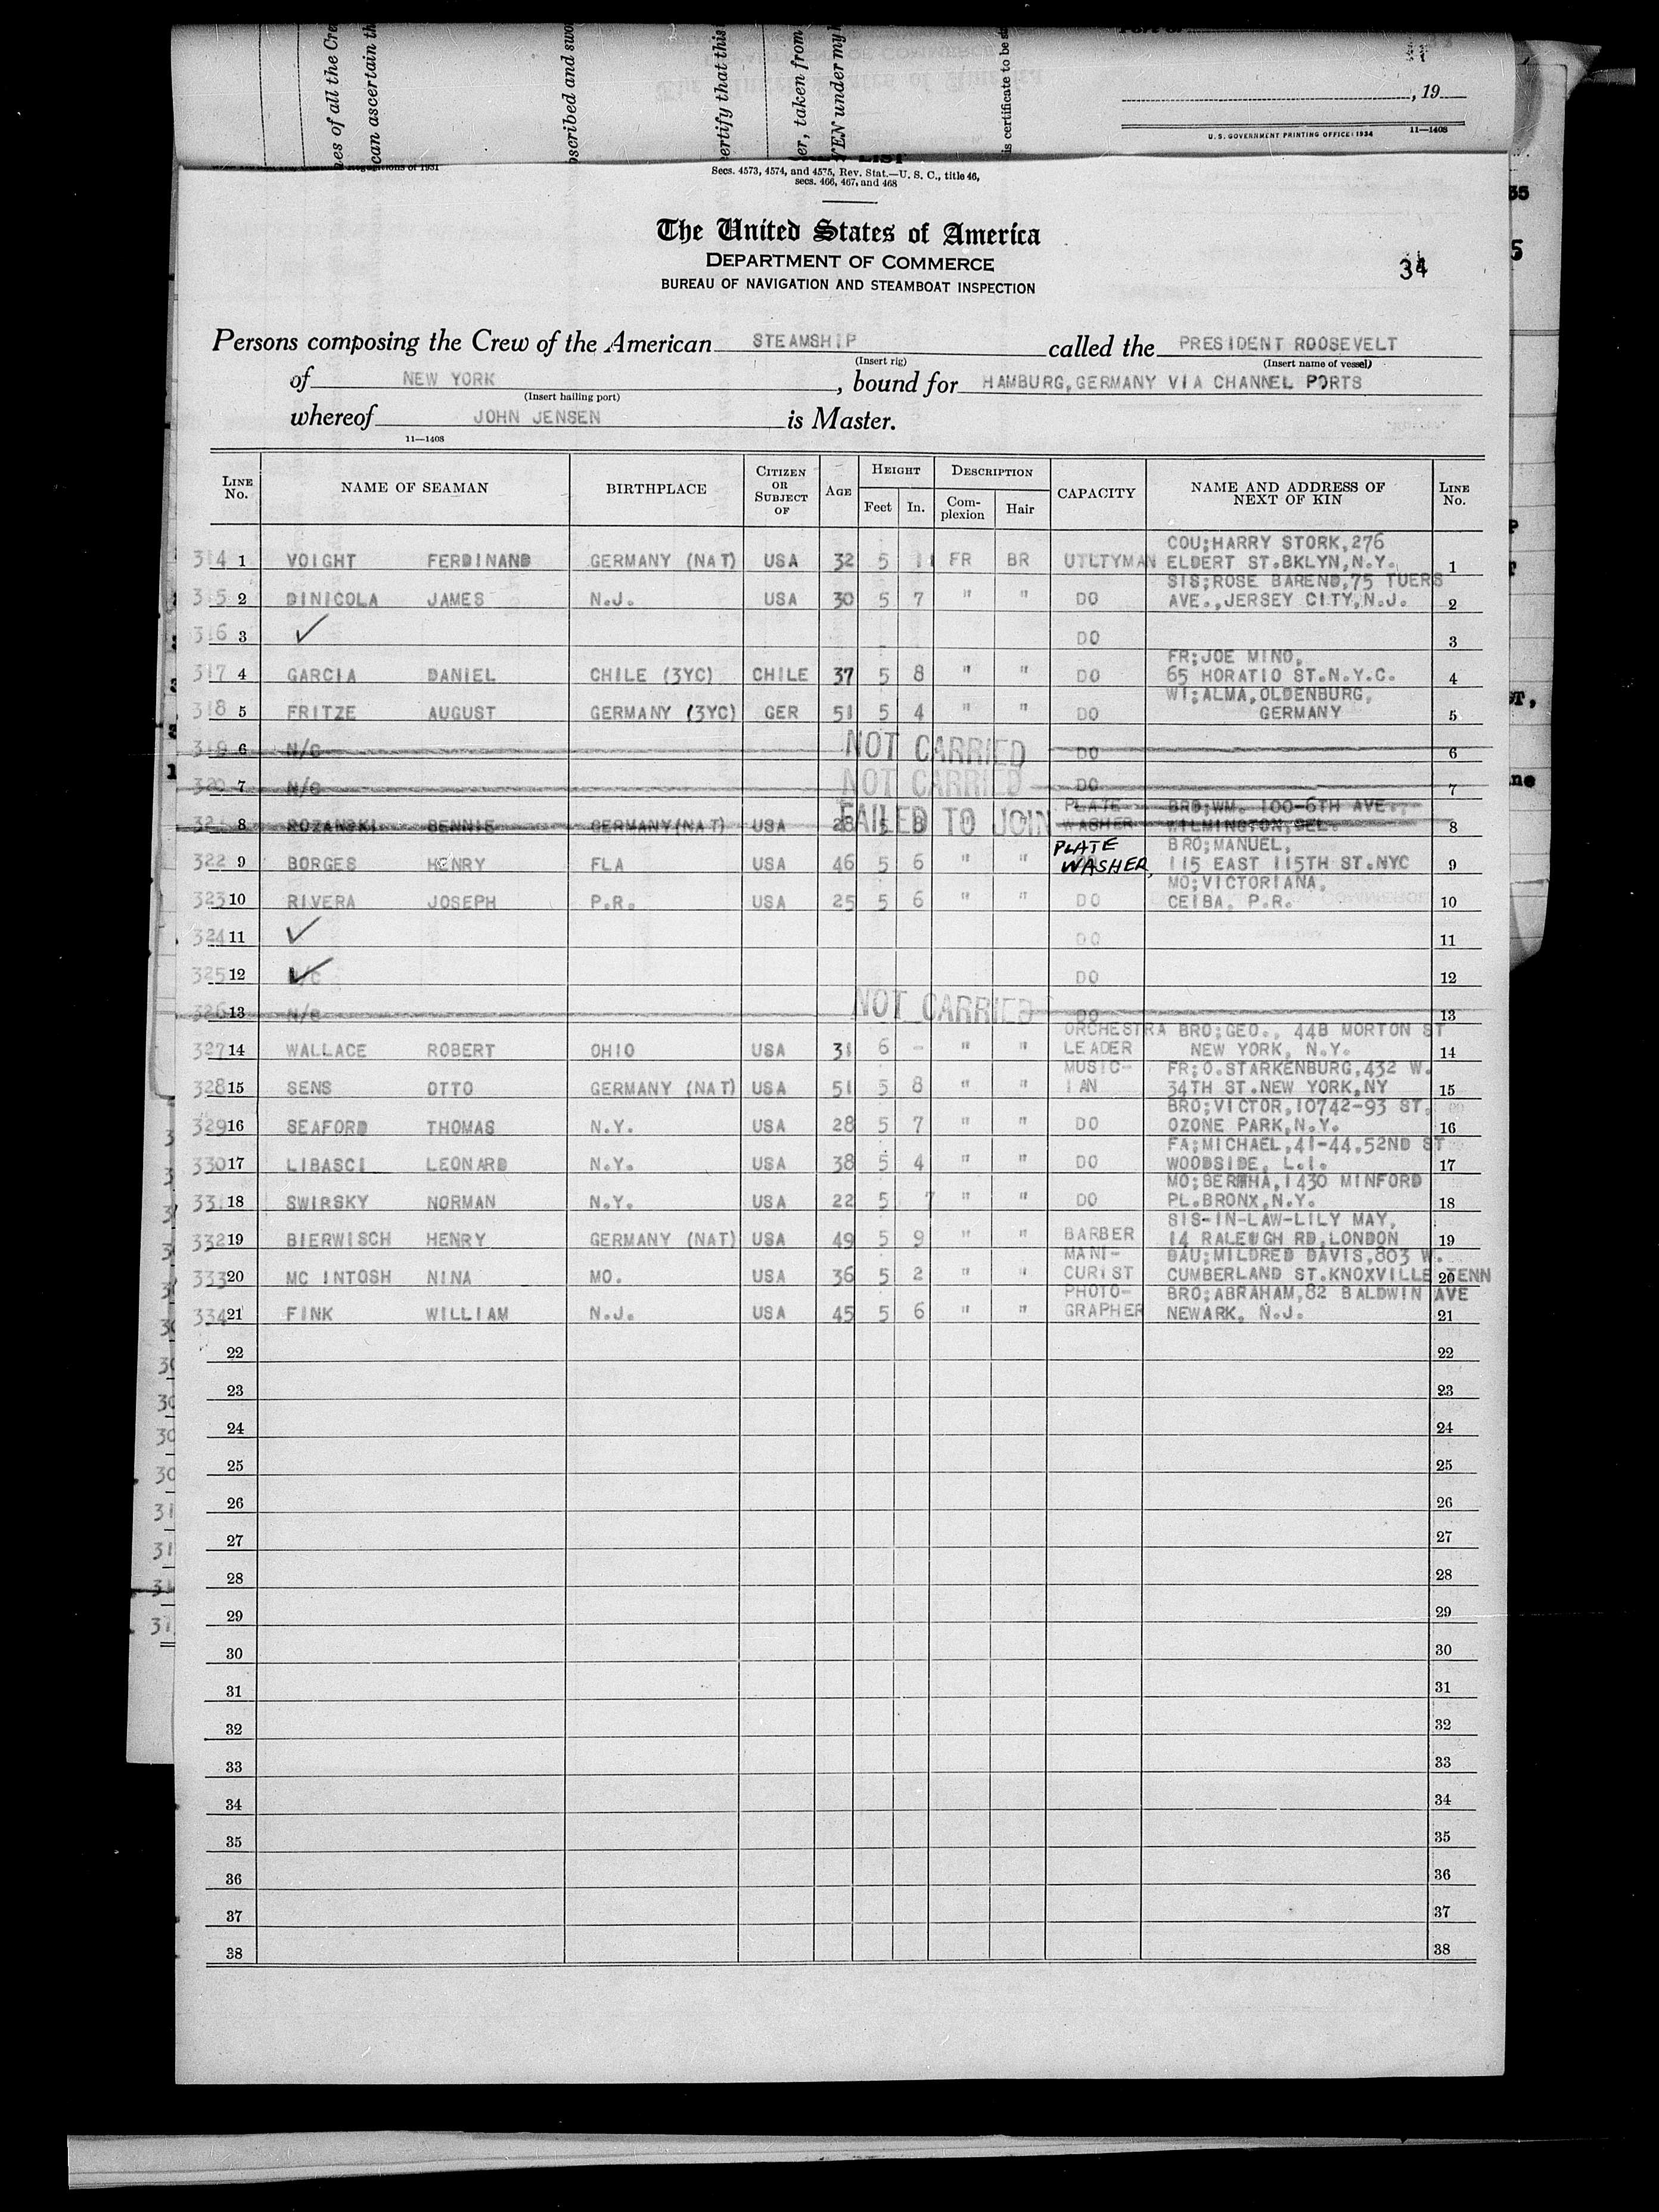 nes of all the Cre
can ascertain th
oscribed and swo
ertify that this
er, taken from
TEN under my
is certificate to be
, 19
U. S. GOVERNMENT PRINTING OFFICE: 1934 11—1408
Regulations of 1931
LIST
Secs. 4573, 4574, and 4575, Rev. Stat.—U. S. C., title 46,
secs. 466, 467, and 468
The United States of America
DEPARTMENT OF COMMERCE
BUREAU OF NAVIGATION AND STEAMBOAT INSPECTION
34
Persons composing the Crew of the American STEAMSHIP called the PRESIDENT ROOSEVELT
(Insert rig) (Insert name of vessel)
of NEW YORK, bound for HAMBURG,GERMANY VIA CHANNEL PORTS
(Insert hailing port)
whereof JOHN JENSEN is Master.
11—1408
LINE No. NAME OF SEAMAN BIRTHPLACE CITIZEN OR SUBJECT OF AGE HEIGHT Feet In. DESCRIPTION Complexion Hair CAPACITY NAME AND ADDRESS OF NEXT OF KIN LINE No.
COU;HARRY STORK,276
314 1 VOIGHT FERDINAND GERMANY (NAT) USA 32 5 11 FR BR UTLTYMAN ELDERT ST.BKLYN,N.Y. 1
SIS;ROSE BAREND,75 TUERS
315 2 DINICOLA JAMES N.J. USA 30 5 7 " " DO AVE.,JERSEY CITY,N.J. 2
316 3 ✓ DO 3
FR;JOE MINO,
317 4 GARCIA DANIEL CHILE (3YC) CHILE 37 5 8 " " DO 65 HORATIO ST.N.Y.C. 4
WI;ALMA,OLDENBURG,
318 5 FRITZE AUGUST GERMANY (3YC) GER 51 5 4 " " DO GERMANY 5
319 6 N/C NOT CARRIED DO 6
320 7 N/C NOT CARRIED DO 7
PLATE BRO;WM. 100-6TH AVE.
321 8 ROZANSKI BENNIE GERMANY(NAT) USA 28 5 8 FAILED TO JOIN WASHER WILMINGTON,DEL. 8
PLATE BRO;MANUEL,
322 9 BORGES HENRY FLA USA 46 5 6 " " WASHER 115 EAST 115TH ST.NYC 9
MO;VICTORIANA,
323 10 RIVERA JOSEPH P.R. USA 25 5 6 " " DO CEIBA, P.R. 10
324 11 ✓ DO 11
325 12 N/C ✓ DO 12
326 13 N/C NOT CARRIED DO 13
ORCHESTRA BRO;GEO., 44B MORTON ST
327 14 WALLACE ROBERT OHIO USA 31 6 - " " LEADER NEW YORK, N.Y. 14
MUSIC- FR;O.STARKENBURG,432 W.
328 15 SENS OTTO GERMANY (NAT) USA 51 5 8 " " IAN 34TH ST.NEW YORK,NY 15
BRO;VICTOR,10742-93 ST.
329 16 SEAFORD THOMAS N.Y. USA 28 5 7 " " DO OZONE PARK,N.Y. 16
FA;MICHAEL,41-44,52ND ST
330 17 LIBASCI LEONARD N.Y. USA 38 5 4 " " DO WOODSIDE, L.I. 17
MO;BERTHA,1430 MINFORD
331 18 SWIRSKY NORMAN N.Y. USA 22 5 7 " " DO PL.BRONX,N.Y. 18
SIS-IN-LAW-LILY MAY,
332 19 BIERWISCH HENRY GERMANY (NAT) USA 49 5 9 " " BARBER 14 RALEUGH RD,LONDON 19
MANI- DAU;MILDRED DAVIS,803 W.
333 20 MC INTOSH NINA MO. USA 36 5 2 " " CURIST CUMBERLAND ST.KNOXVILLE TENN 20
PHOTO- BRO;ABRAHAM,82 BALDWIN AVE
334 21 FINK WILLIAM N.J. USA 45 5 6 " " GRAPHER NEWARK, N.J. 21
22 22
23 23
24 24
25 25
26 26
27 27
28 28
29 29
30 30
31 31
32 32
33 33
34 34
35 35
36 36
37 37
38 38